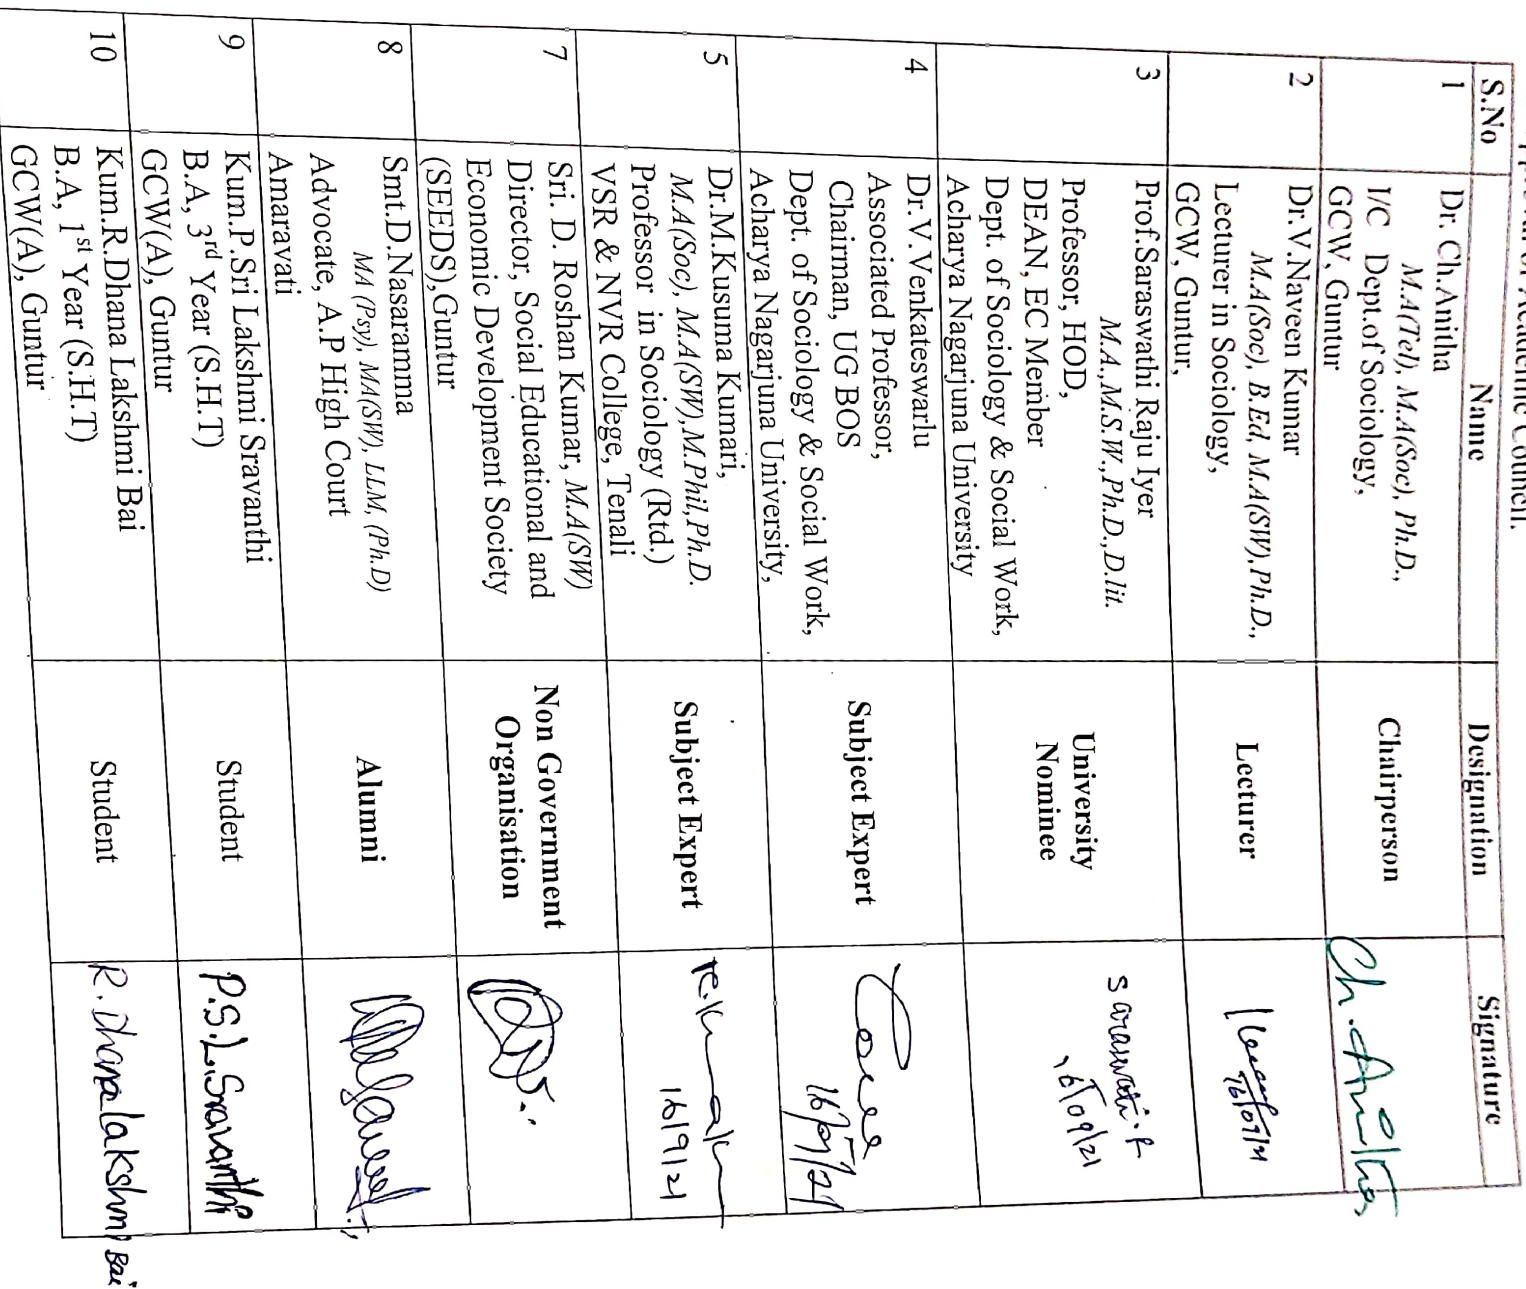 Academic Council.
S.No Name Designation Signature
1 Dr. Ch.Anitha
M.A(Tel), M.A(Soc), Ph.D.,
I/C Dept.of Sociology,
GCW, Guntur
Chairperson
Ch. Anitha
2 Dr.V.Naveen Kumar
M.A(Soc), B.Ed, M.A(SW),Ph.D.,
Lecturer in Sociology,
GCW, Guntur,
Lecturer
16/09/21
3 Prof.Saraswathi Raju Iyer
M.A.,M.S.W.,Ph.D.,D.lit.
Professor, HOD,
DEAN, EC Member
Dept. of Sociology & Social Work,
Acharya Nagarjuna University
University
Nominee
Saraswati. R
16/09/21
4 Dr.V.Venkateswarlu
Associated Professor,
Chairman, UG BOS
Dept. of Sociology & Social Work,
Acharya Nagarjuna University,
Subject Expert
16/09/21
5 Dr.M.Kusuma Kumari,
M.A(Soc), M.A(SW),M.Phil,Ph.D.
Professor in Sociology (Rtd.)
VSR & NVR College, Tenali
Subject Expert
16/9/21
7 Sri. D. Roshan Kumar, M.A(SW)
Director, Social Educational and
Economic Development Society
(SEEDS),Guntur
Non Government
Organisation
8 Smt.D.Nasaramma
MA (Psy), MA(SW), LLM, (Ph.D)
Advocate, A.P High Court
Amaravati
Alumni
9 Kum.P.Sri Lakshmi Sravanthi
B.A, 3rd Year (S.H.T)
GCW(A), Guntur
Student
P.S.L.Sravanthi
10 Kum.R.Dhana Lakshmi Bai
B.A, 1st Year (S.H.T)
GCW(A), Guntur
Student
R. Dhanalakshmi Bai